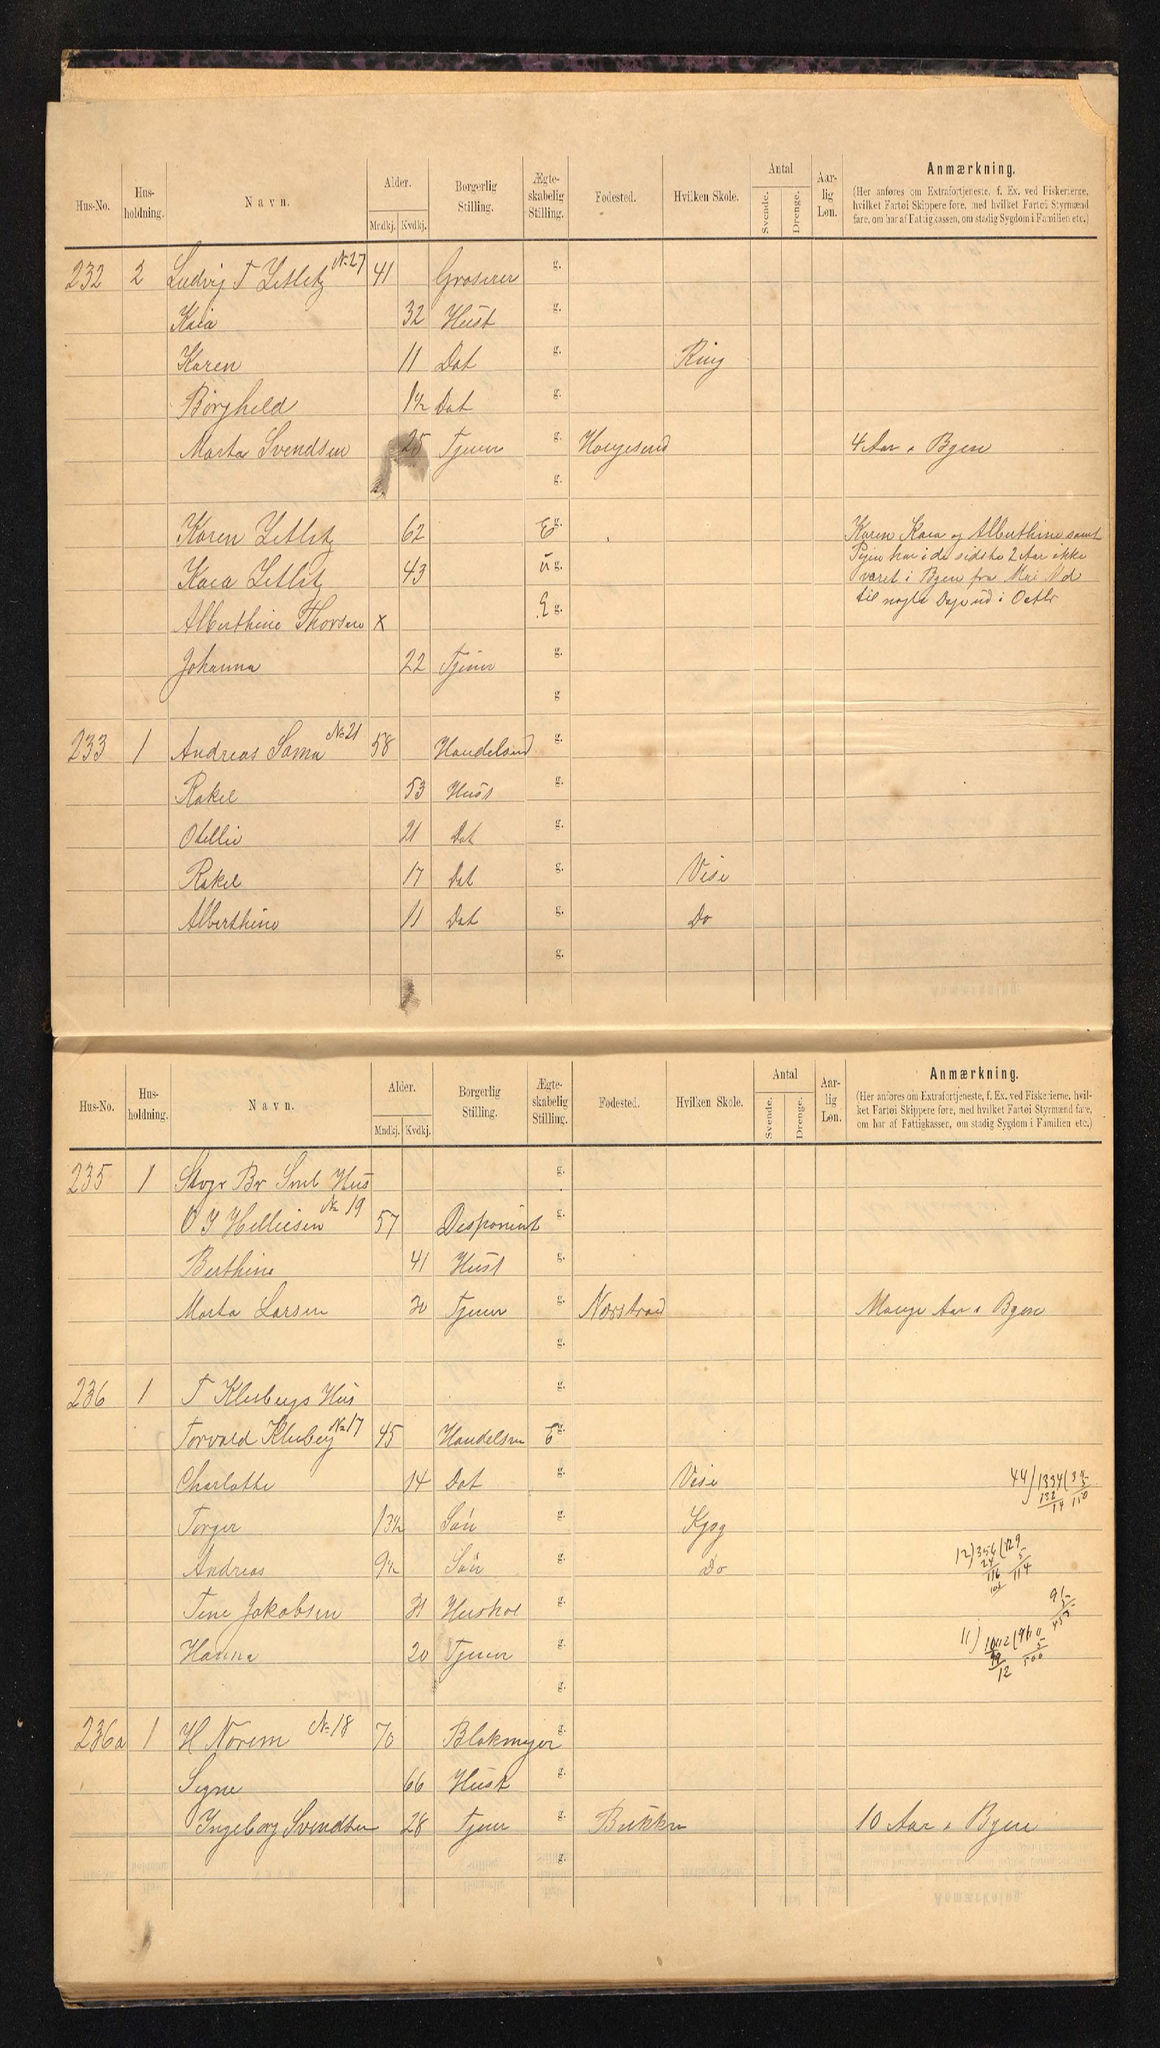 Hus-No. Hus-holdning. Navn. Alder. Mndkj. Kvdkj. Borgerlig Stilling. Ægte-skabelig Stilling. Fødested. Hvilken Skole. Antal Svende. Drenge. Aar-lig Løn. Anmærkning.
(Her anføres om Extrafortjeneste, f. Ex. ved Fiskerierne,
hvilket Fartøi Skippere føre, med hvilket Fartøi Styrmænd
fare, om har af Fattigkassen, om stadig Sygdom i Familien etc.)
232 2 Ludvig T Zetlitz No 27 41 Groserer g.
Kaia 32 Hust g.
Karen 11 Dat g. Ring
Borghild 1½ Dat g.
Marta Svendsen 25 Tjener g. Haugesund 4 Aar i Byen
g.
Karen Zetlitz 62 E g. Karen Kaia og Alberthine samt
Kaia Zetlitz 43 u g. Pigen har i de sidste 2 Aar ikke
været i Byen fra Mai Md
Alberthine Thorsen x E g. til nogle Dage ud i Octbr
Johanna 22 Tjener g.
g
233 1 Andreas Sømn No 21 58 Handelsmd g.
Rakel 53 Hust g.
Otellie 21 Dat g.
Rakel 17 Dat g. Vise
Alberthine 11 Dat g. Do
g.
Hus-No. Hus-holdning. Navn. Alder. Mndkj. Kvdkj. Borgerlig Stilling. Ægte-skabelig Stilling. Fødested. Hvilken Skole. Antal Svende. Drenge. Aar-lig Løn. Anmærkning.
(Her anføres om Extrafortjeneste, f. Ex. ved Fiskerierne, hvil-
ket Fartøi Skippere føre, med hvilket Fartøi Styrmænd fare,
om har af Fattigkassen, om stadig Sygdom i Familien etc.)
235 1 Br Hus g.
O J Helliesen No 19 57 Disponent g.
Berthine 41 Hust g.
Marta Larsen 30 Tjener g. Nærstrand Mange Aar i Byen
g.
236 1 T Klubegs Hus g.
Torvald Klubeg No 17 45 Handelsm E g.
Charlotte 14 Dat g. Vise 44)1334(
132
14 110
Torger 13½ Søn g. Kgsg
12)354(29
24 5
116 114
Andreas 9½ Søn g. Do
Tine Jakobsen 31 Hushol g.
Hanna 20 Tjener g.
12 500
g.
236a 1 H Norem No 18 70 Blokmager g.
Signe 66 Hust g.
Ingeborg Svendsen 28 Tjener g. Bukken 10 Aar i Byen
g.